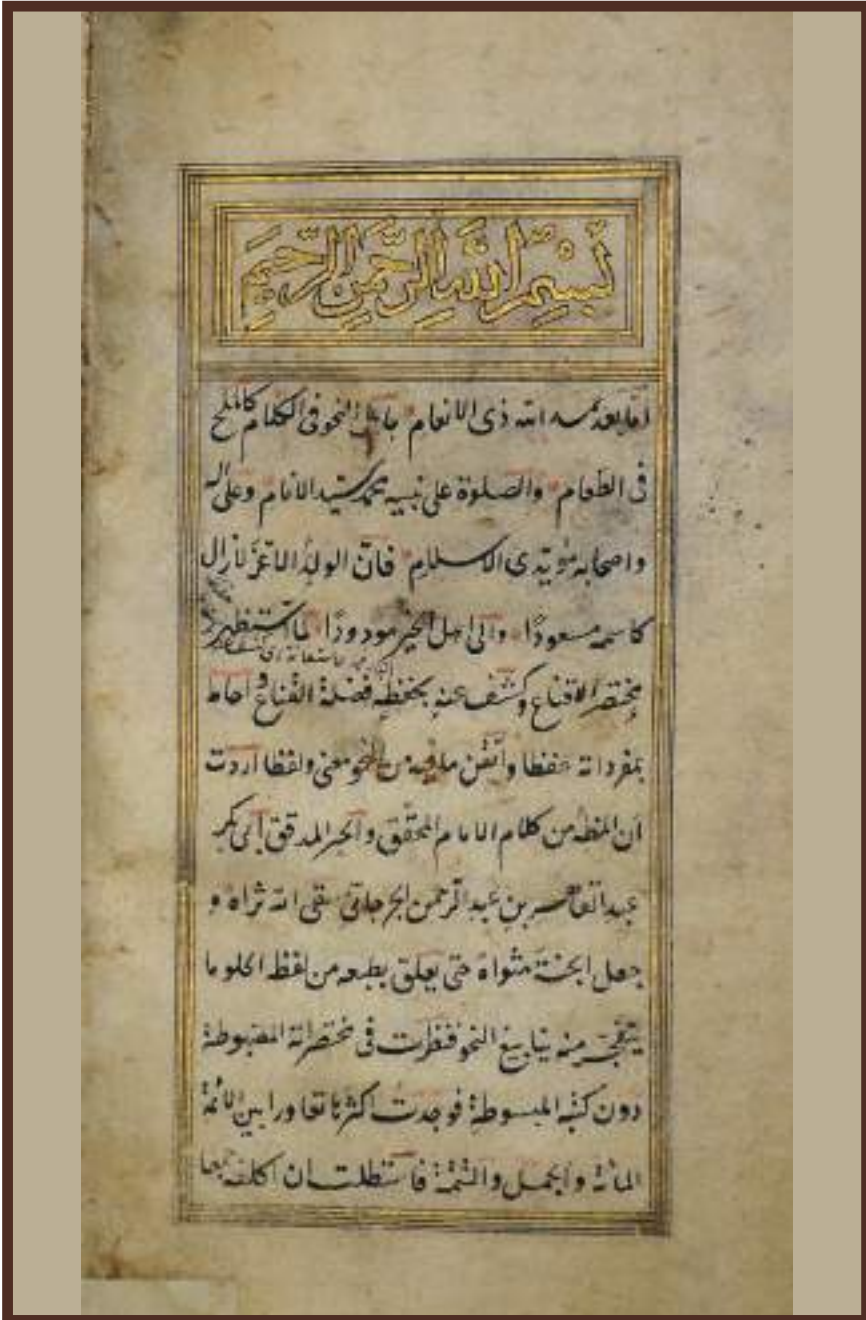 بِسْمِ اللَّهِ الرَّحْمَنِ الرَّحِيمِ
اما بعد حمد الله ذى الانعام جاعل النحو فى الكلام كالملح
فى الطعام والصلوة على نبيه محمد سيد الانام وعلى اله
واصحابه مؤيدى الاسلام فان الولد الاعز لا زال
كاسمه مسعودا والى اهل الخير مودودا لما استظهر
مختصر الاقناع وكشف عنه بحفظه فضلة القناع و احاط
بمفرداته حفظا واتقن ما فيه من النحو معنى ولفظا اردت
ان المظه من كلام الامام المحقق والحبر المدقق ابى بكر
عبد القاهر بن عبد الرحمن الجرجانى سقى الله ثراه و
جعل الجنة مثواه حتى يعلق بطبعه من لفظ الحلو ما
يتفجر منه ينابيع النحو فنظرت فى مختصراته المضبوطة
دون كتبه المبسوطة فوجدت اكثرها تعاورا بين الائمة
المائة والجمل والتتمة فاستطلت ان اكلفه جمعها